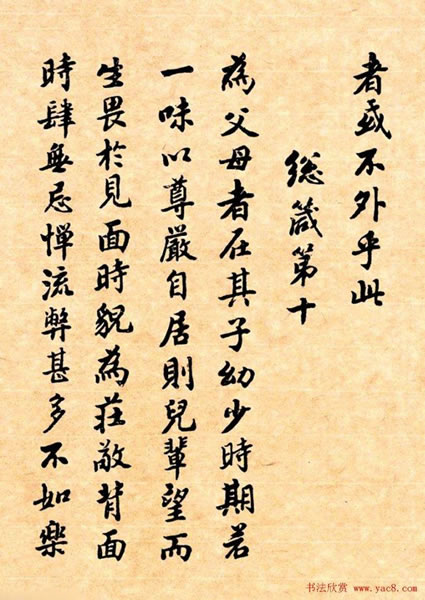 者或不外乎此
總箴第十
為父母者在其子幼少時期若
一味以尊嚴自居則兒輩望而
生畏於見面時貌為莊敬背面
時肆無忌憚流弊甚多不如樂
书法欣赏 www.yac8.com